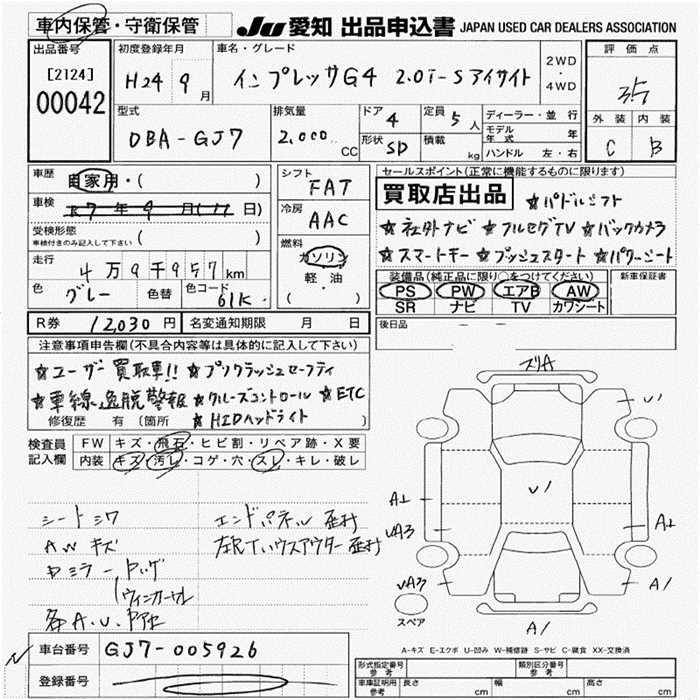 車内保管・守衛保管
JU 愛知 出品申込書 JAPAN USED CAR DEALERS ASSOCIATION
出品番号
[2124]
00042
初度登録年月
H24 9月
車名・グレード
インプレッサG4 2.0i-Sアイサイト
2WD
・
4WD
評価点
3.5
外装 内装
C B
型式
DBA-GJ7
排気量
2,000 CC
ドア 4
形状 SD
定員 5人
積載 kg
ディーラー・並行
モデル年式 年
ハンドル 左・右
車歴
自家用・( )
車検
R7年9月(11日)
受検形態
車検付きのみ記入して下さい ( )
走行
4万9千957km
色 グレー 色替 色コード 61K
シフト
FAT
冷房
AAC
燃料
ガソリン
軽・油
( ・ )
セールスポイント(正常に機能するものに限ります)
買取店出品 ☆パドルシフト
☆社外ナビ ☆フルセグTV ☆バックカメラ
☆スマートキー ☆プッシュスタート ☆パワーシート
装備品(純正品に限り○をつけてください)
PS PW エアB AW
SR ナビ TV カワシート
新車保証書
R券 12,030円 名変通知期限 月 日
後日品
注意事項申告欄(不具合内容等は具体的に記入して下さい)
☆ユーザー買取車!! ☆プリクラッシュセーフティ
☆車線逸脱警報 ☆クルーズコントロール ☆ETC
修復歴 有 〔箇所 ☆HIDヘッドライト
検査員記入欄
FW キズ・飛石・ヒビ割・リペア跡・X要
内装 キズ・汚レ・コゲ・穴・スレ・キレ・破レ
シートシワ
AWキズ
エンドパネル歪村
各A.U.
スリA
A1
スペア
A-キズ E-エクボ U-凹み W-補修跡 S-サビ C-腐食 XX-交換済
車台番号 GJ7-005926
登録番号
形式指定番号 参考
類別区分番号 参考
車庫証明用 参考 長さ cm 幅 cm 高さ cm